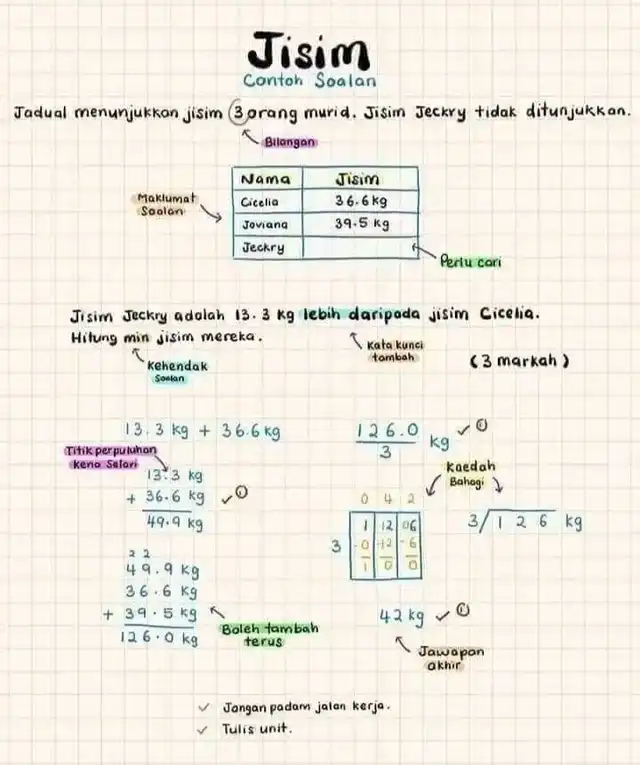 Jisim
Contoh Soalan
Jadual menunjukkan jisim 3 orang murid. Jisim Jeckry tidak ditunjukkan.
Bilangan
Nama Jisim
Maklumat Soalan
Cicelia 36.6 kg
Joviana 39.5 kg
Jeckry
Perlu cari
Jisim Jeckry adalah 13.3 kg lebih daripada jisim Cicelia.
Hitung min jisim mereka.
Kata kunci tambah
(3 markah)
Kehendak Soalan
13.3 kg + 36.6 kg
Titik perpuluhan kena Selari
13.3 kg
+ 36.6 kg ✓ ①
49.9 kg
2 2
49.9 kg
36.6 kg
+ 39.5 kg
126.0 kg
Boleh tambah terus
126.0
3 kg ✓ ①
Kaedah Bahagi
0 4 2
1 12 06
3 -0 -12 -6
1 0 0
3/126 kg
42 kg ✓ ①
Jawapan akhir
✓ Jangan padam jalan kerja.
✓ Tulis unit.